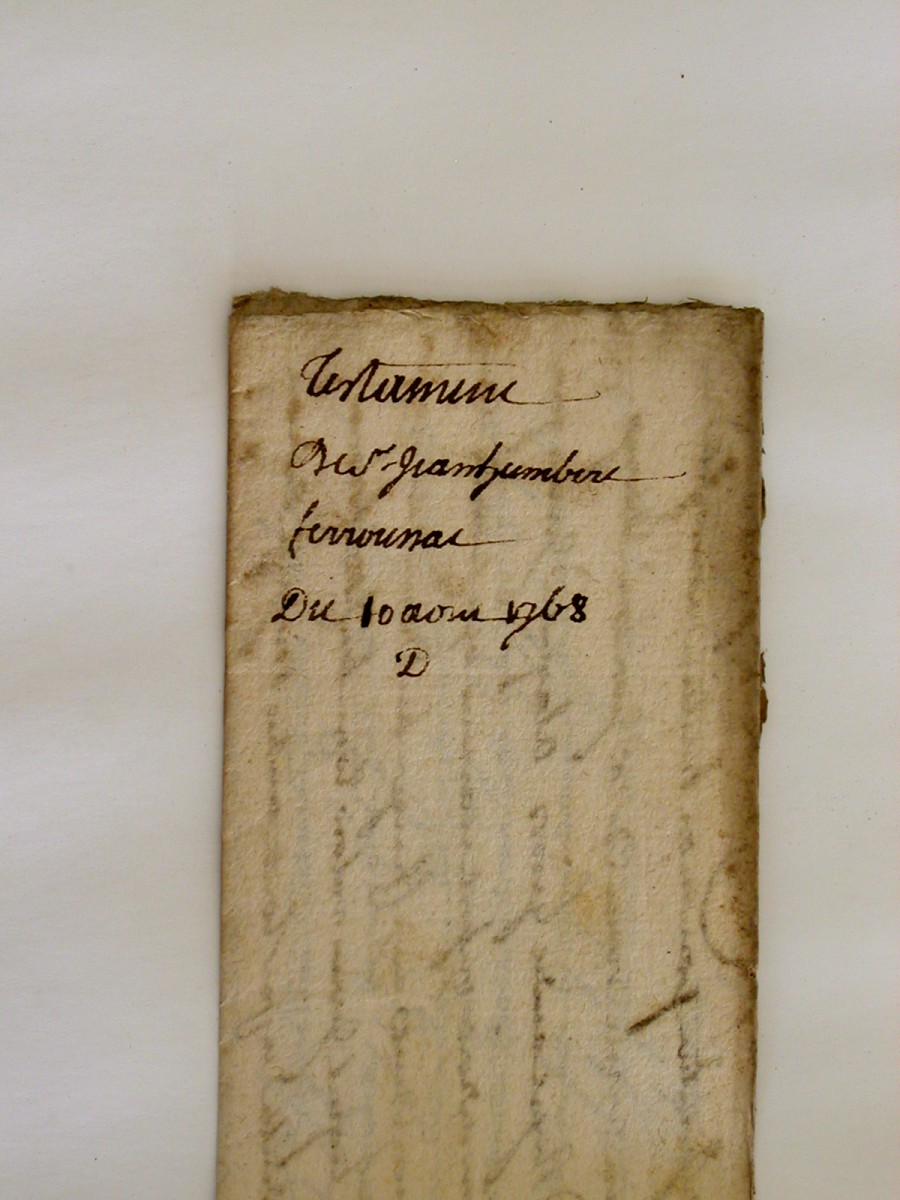 Testament
De Sr Jean humbert
ferrounat
Du 10 aout 1768
D